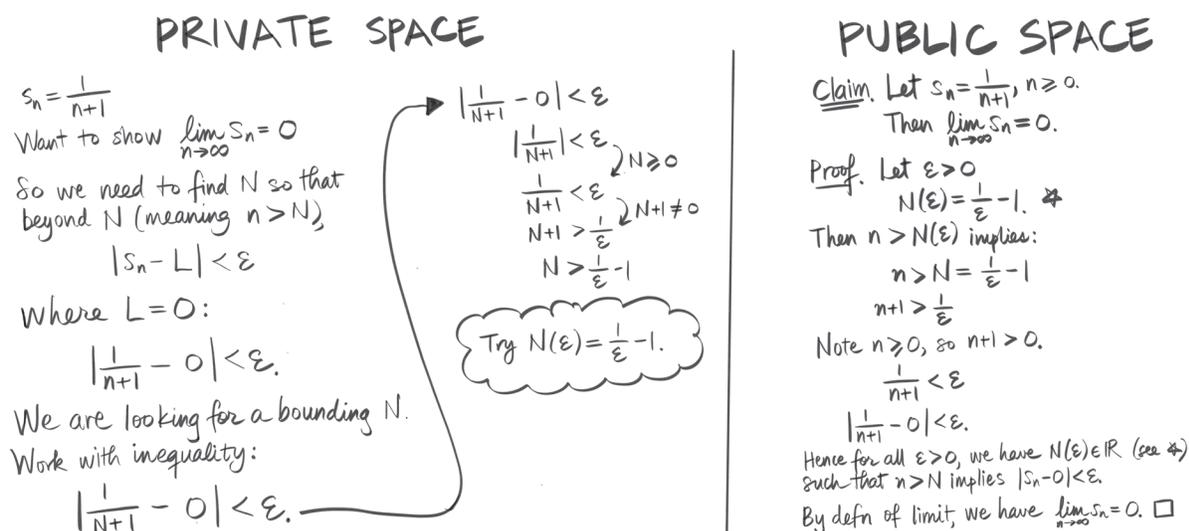 PRIVATE SPACE
sₙ = 1/(n+1)
Want to show lim_{n→∞} sₙ = 0
So we need to find N so that
beyond N (meaning n > N),
|sₙ - L| < ε
where L = 0:
|1/(n+1) - 0| < ε.
We are looking for a bounding N.
Work with inequality:
|1/(N+1) - 0| < ε.
|1/(N+1) - 0| < ε
|1/(N+1)| < ε
N ⩾ 0
1/(N+1) < ε
N+1 ≠ 0
N+1 > 1/ε
N > 1/ε - 1
Try N(ε) = 1/ε - 1.
PUBLIC SPACE
Claim. Let sₙ = 1/(n+1), n ⩾ 0.
Then lim_{n→∞} sₙ = 0.
Proof. Let ε > 0
N(ε) = 1/ε - 1. *
Then n > N(ε) implies:
n > N = 1/ε - 1
n+1 > 1/ε
Note n ⩾ 0, so n+1 > 0.
1/(n+1) < ε
|1/(n+1) - 0| < ε.
Hence for all ε > 0, we have N(ε) ∈ ℝ (see *)
such that n > N implies |sₙ - 0| < ε.
By defn of limit, we have lim_{n→∞} sₙ = 0. □